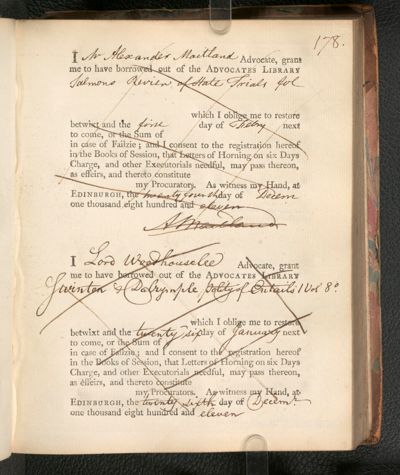 178.
I Mr Alexander Maitland Advocate, grant
me to have borrowed out of the ADVOCATES LIBRARY
Salmons Review of State Trials fol
which I oblige me to restore
betwixt and the first day of Febry next
to come, or the Sum of
in case of Failzie; and I consent to the registration hereof
in the Books of Session, that Letters of Horning on six Days
Charge, and other Executorials needful, may pass thereon,
as effeirs, and thereto constitute
my Procurators. As witness my Hand, at
EDINBURGH, the twenty fourth day of Decem
one thousand eight hundred and eleven
A Maitland
I Lord Woodhouselee Advocate, grant
me to have borrowed out of the ADVOCATES LIBRARY
Swinton & Dalrymple Polity of Entails 1 Vol 8o
which I oblige me to restore
betwixt and the twenty six day of January next
to come, or the Sum of
in case of Failzie; and I consent to the registration hereof
in the Books of Session, that Letters of Horning on six Days
Charge, and other Executorials needful, may pass thereon,
as effeirs, and thereto constitute
my Procurators. As witness my Hand, at
EDINBURGH, the twenty sixth day of Decemr
one thousand eight hundred and eleven